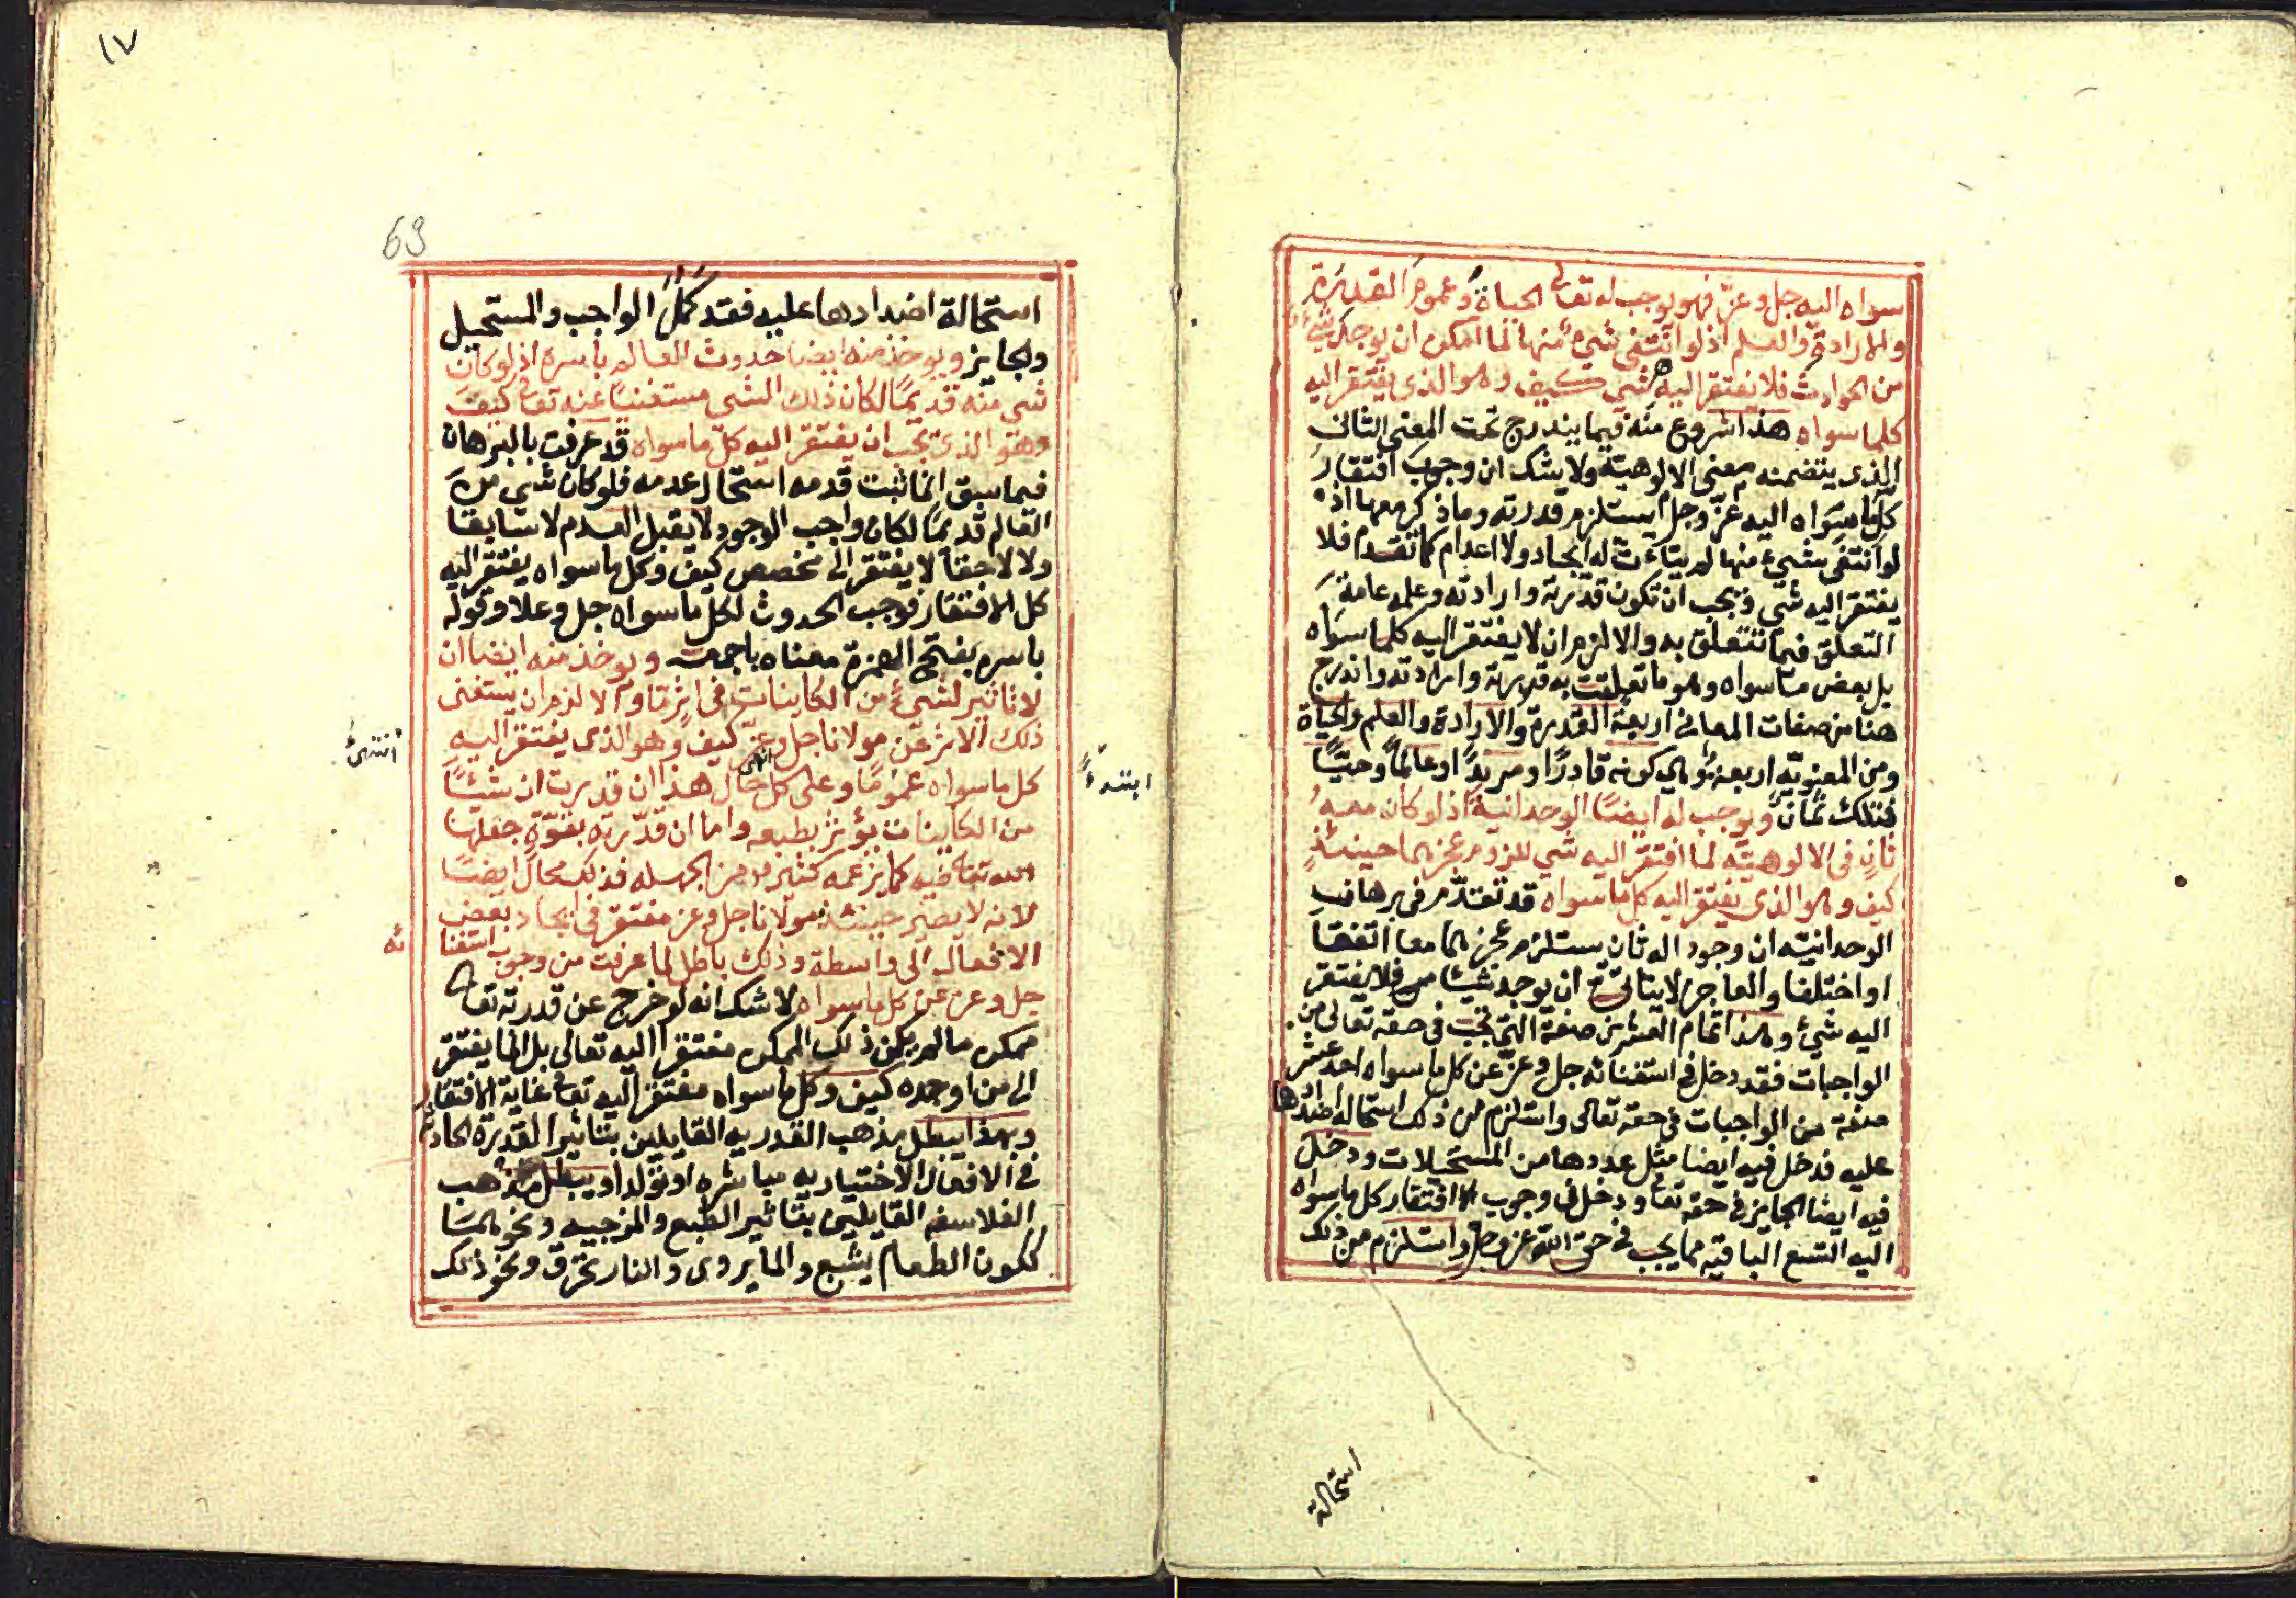 سواه اليه جل وعز فهو يوجب له تعالى الحياة وعموم القدرة
والارادة والعلم اذ لو انتفى شيء منها لما امكن ان يوجد شيء
من الحوادث فلا يفتقر اليه شي كيف وهو الذي يفتقر اليه
كلما سواه هذا شروع منه فيما يندرج تحت المعنى الثاني
الذي يتضمنه معنى الالوهية ولا يشك ان وجوب افتقار
كل ما سواه اليه عز وجل يستلزم قدرته وما ذكر معها اذ
لو انتفى شيء منها لم يتاءت له ايجاد ولا اعدام كما تقدم فلا
يفتقر اليه شي ويجب ان تكون قدرته وارادته وعلمه عامة
التعلق فيما تتعلق به والا لزم ان لا يفتقر اليه كلما سواه
بل بعض ما سواه وهو ما تعلقت به قدرته وارادته واندرج
هنا من صفات المعاني اربعة القدرة والارادة والعلم والحياة
ومن المعنويه اربعة وهي كونه قادرًا ومريدًا وعالمًا وحيًّا
فتلك ثمان ويوجب له ايضًا الوحدانية اذ لو كان معه
ثان في الالوهية لما افتقر اليه شي للزوم عجزهما حينئذ
كيف وهو الذي يفتقر اليه كل ما سواه قد تقدم في برهان
الوحدانيه ان وجود اله ثان يستلزم عجزهما معا اتفقا
او اختلفا والعاجز لا يتاتى ان يوجد شيئا فلا يفتقر
اليه شيء وهذا تمام العشرين صفة التي تجب في حقه تعالى من
الواجبات فقد دخل في استغنائه جل وعز عن كل ما سواه احد عشر
صفة من الواجبات في حقه تعالى واستلزم من ذلك استحالة اضدادها
عليه فدخل فيه ايضا مثل عددها من المستحيلات ودخل
فيه ايضا الجايز في حقه تعالى ودخل في وجوب افتقار كل ما سواه
اليه التسع الباقيه مما يجب في حق الله عز وجل واستلزم من ذلك
استحالة
١٧
69
استحالة اضدادها عليه فقد كمل الواجب والمستحيل
والجايز ويوخذ منه ايضا حدوث العالم باسره اذ لو كان
شي منه قديمًا لكان ذلك الشي مستغنيًا عنه تعالى كيف
وهو الذي يجب ان يفتقر اليه كل ما سواه قد عرفت بالبرهان
فيما سبق ان ما ثبت قدمه استحال عدمه فلو كان شي من
العالم قديمًا لكان واجب الوجود لا يقبل العدم لا سابقا
ولا لاحقا لا يفتقر الى مخصص كيف وكل ما سواه يفتقر اليه
كل الافتقار فوجب الحدوث لكل ما سواه جل وعلا وقوله
باسره بفتح الهمزة معناه باجمعه ويوخذ منه ايضا ان
لا تاثير لشيء من الكاينات في اثر ما والا لزم ان يستغنى
ذلك الاثر عن مولانا جل وعز كيف وهو الذي يفتقر اليه
كل ما سواه عمومًا وعلى كل حال هذا ان قدرت ان شيئًا
من الكاينات يؤثر بطبعه واما ان قدرته بقوة جعلها
الله تعالى فيه كما يزعمه كثير من الجهله فذلك محال ايضًا
لانه لا يصير حينئذ مولانا جل وعز مفتقر في ايجاد بعض
الافعال الى واسطة وذلك باطل لما عرفت من وجوب استغنا
ئه
جل وعز عن كل ما سواه لا شك انه لو خرج عن قدرته تعالى
ممكن ما لم يكن ذلك الممكن مفتقرا اليه تعالى بل انما يفتقر
الى من اوجده كيف وكل ما سواه مفتقر اليه تعالى غاية الافتقار
وبهذا يبطل مذهب القدريه القايلين بتاثير القدرة الحادثة
في الافعال الاختياريه مباشره او تولدا ويبطل مذهب
الفلاسفه القايلين بتاثير الطبع والمزجيه ونحوهما
ككون الطعام يشبع والما يروي والنار تحرق ونحو ذلك